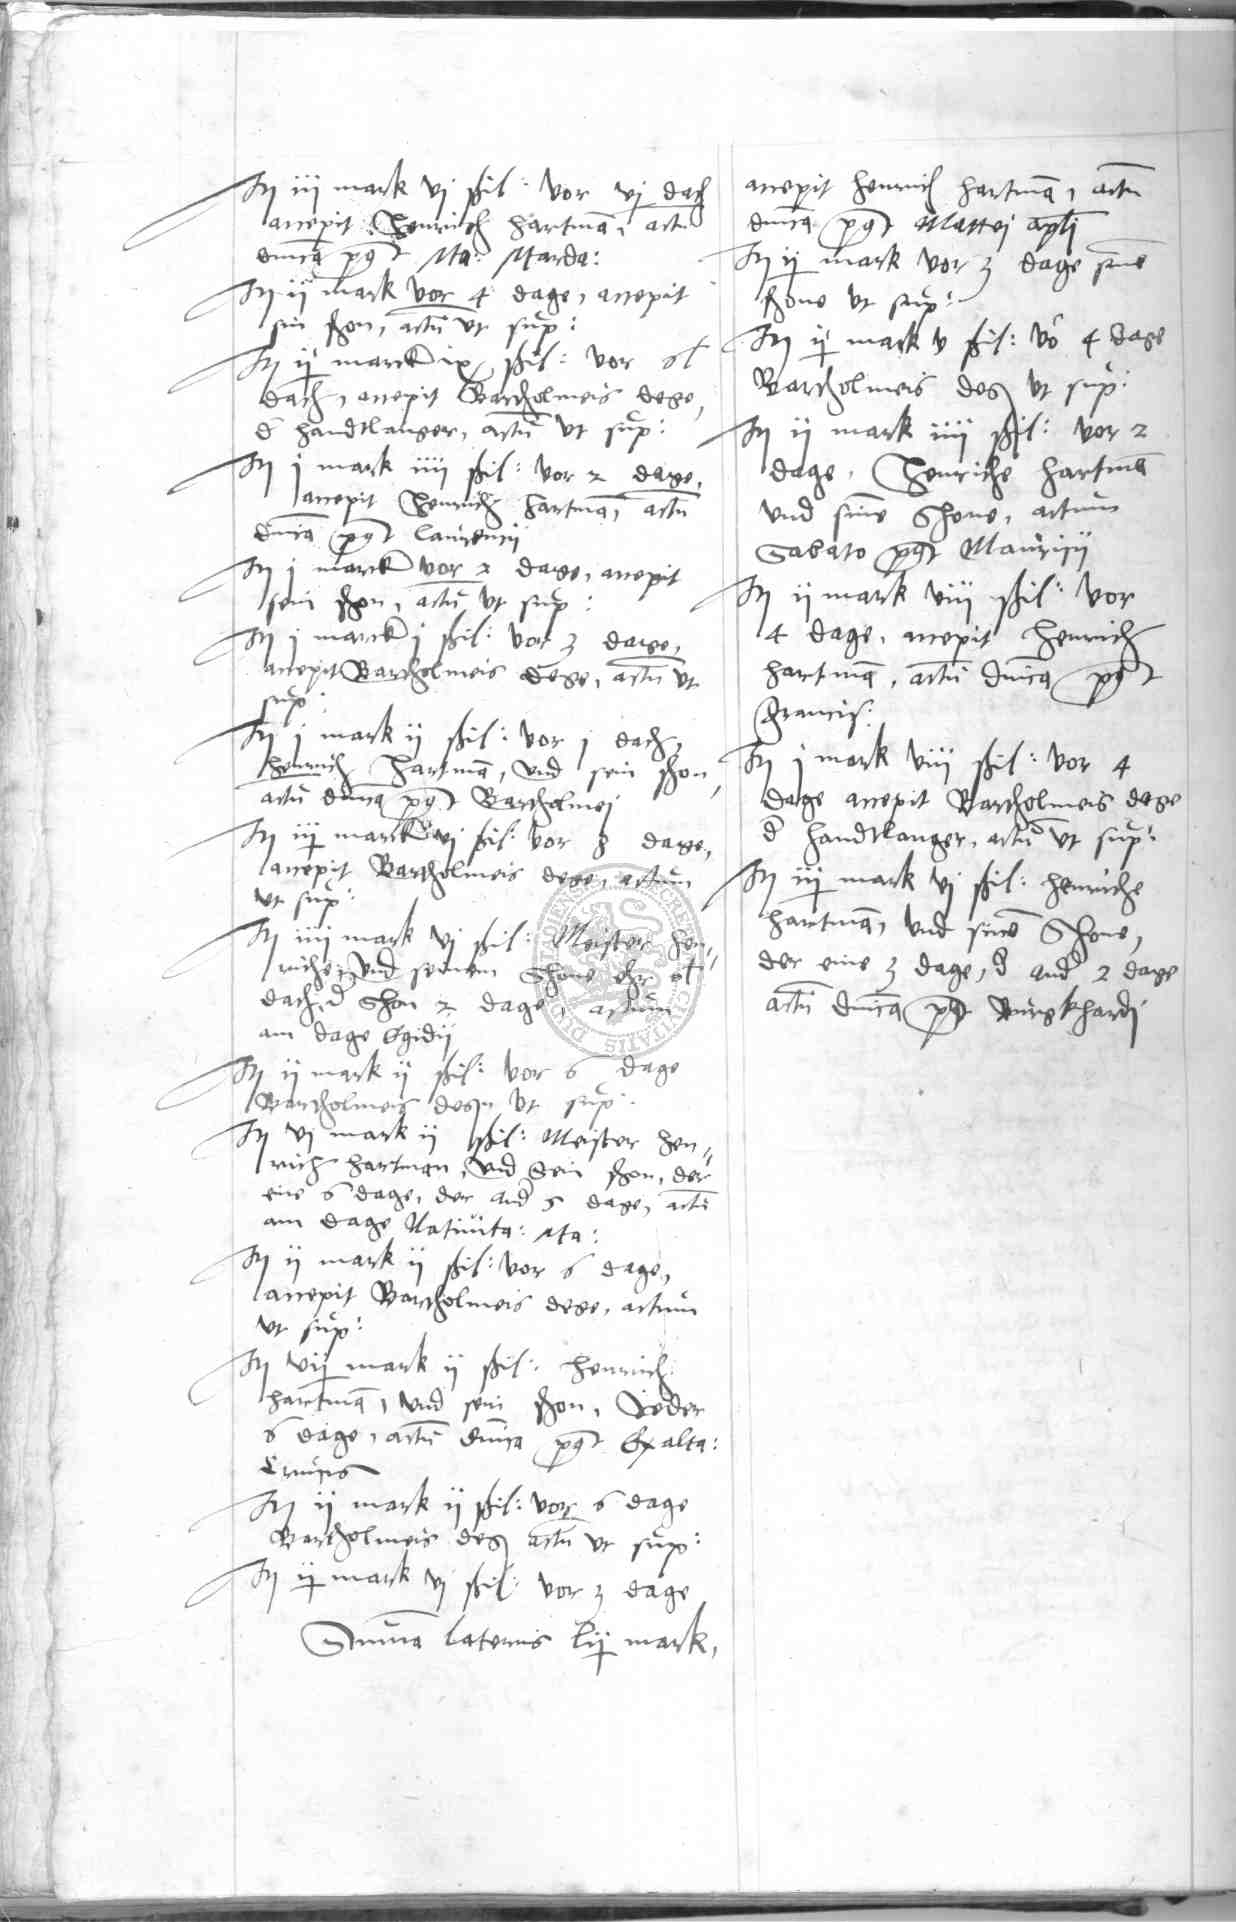 Itm iii mark vj ßil: vor vj dach
accepit Henrich hartmā, actū
dnica post Ma: Marda:
Itm ii mark vor 4 dage, accepit
sin ßon, actū ut sup:
Itm ii marck ix ßil: vor
dach, accepit Bartholmeis dege,
d handtlanger, actū ut sup:
Itm j mark iiii ßil: vor 2 dage,
accepit Henrich hartmā, actū
dnica post laurencii
Itm j marck vor 2 dage, accepit
sein ßon, actū ut sup:
Itm j marck j ßil: vor 3 dage,
accepit Bartholmeis dege, actū ut
sup:
Itm j mark ii ßil: vor j dach,
henrich Hartmā, und sein ßon,
actū dnica post Bartholmei
Itm iii marck vj ßil: vor 8 dage,
accepit Bartholmeis dege, actum
ut sup:
Itm iiii mark vj ßil: Meister hen-
riche, und seinem Shone
dach, d Shon 2 dage, actum
am dage Egidii
Itm ii mark ii ßil: vor 6 dage
Bartholmeis degen ut sup:
Itm vj mark ii ßil: Meister hen-
rich hartman, und Sein ßon, der
eine 6 dage, der and 5 dage, actū
am dage Nativita: Ma:
Itm ii mark ii ßil: vor 6 dage,
accepit Bartholmeis dege, actum
ut sup:
Itm vii mark ii ßil: henrich
hartmā, und sein ßon, Jeder
6 dage, actū dnica post Exalta:
Crucis
Itm ii mark ii ßil: vor 6 dage
Bartholmeis deg actū ut sup:
Itm ii mark vj ßil: vor 3 dage
Summa lateris lii mark,
accepit henrich hartmā, actū
dnica post Mattej apli
Itm ii mark vor 3 dage sine
ßone ut sup:
Itm ii mark v ßil: vo 4 dage
Bartholmeis deg ut sup:
Itm ii mark iiii ßil: vor 2
dage, Henriche hartmā
und sine Shone, actum
Sabato post Mauricii
Itm ii mark viii ßil: vor
4 dage, accepit henrich
hartmā, actū dnica post
francis:
Itm j mark viii ßil: vor 4
dage accepit Bartholmeis dege
d handtlanger, actū ut sup:
Itm iii mark vj ßil: henriche
hartmā, und sine Shone,
der eine 3 dage, d and 2 dage
actū dnica post Burgkhardj